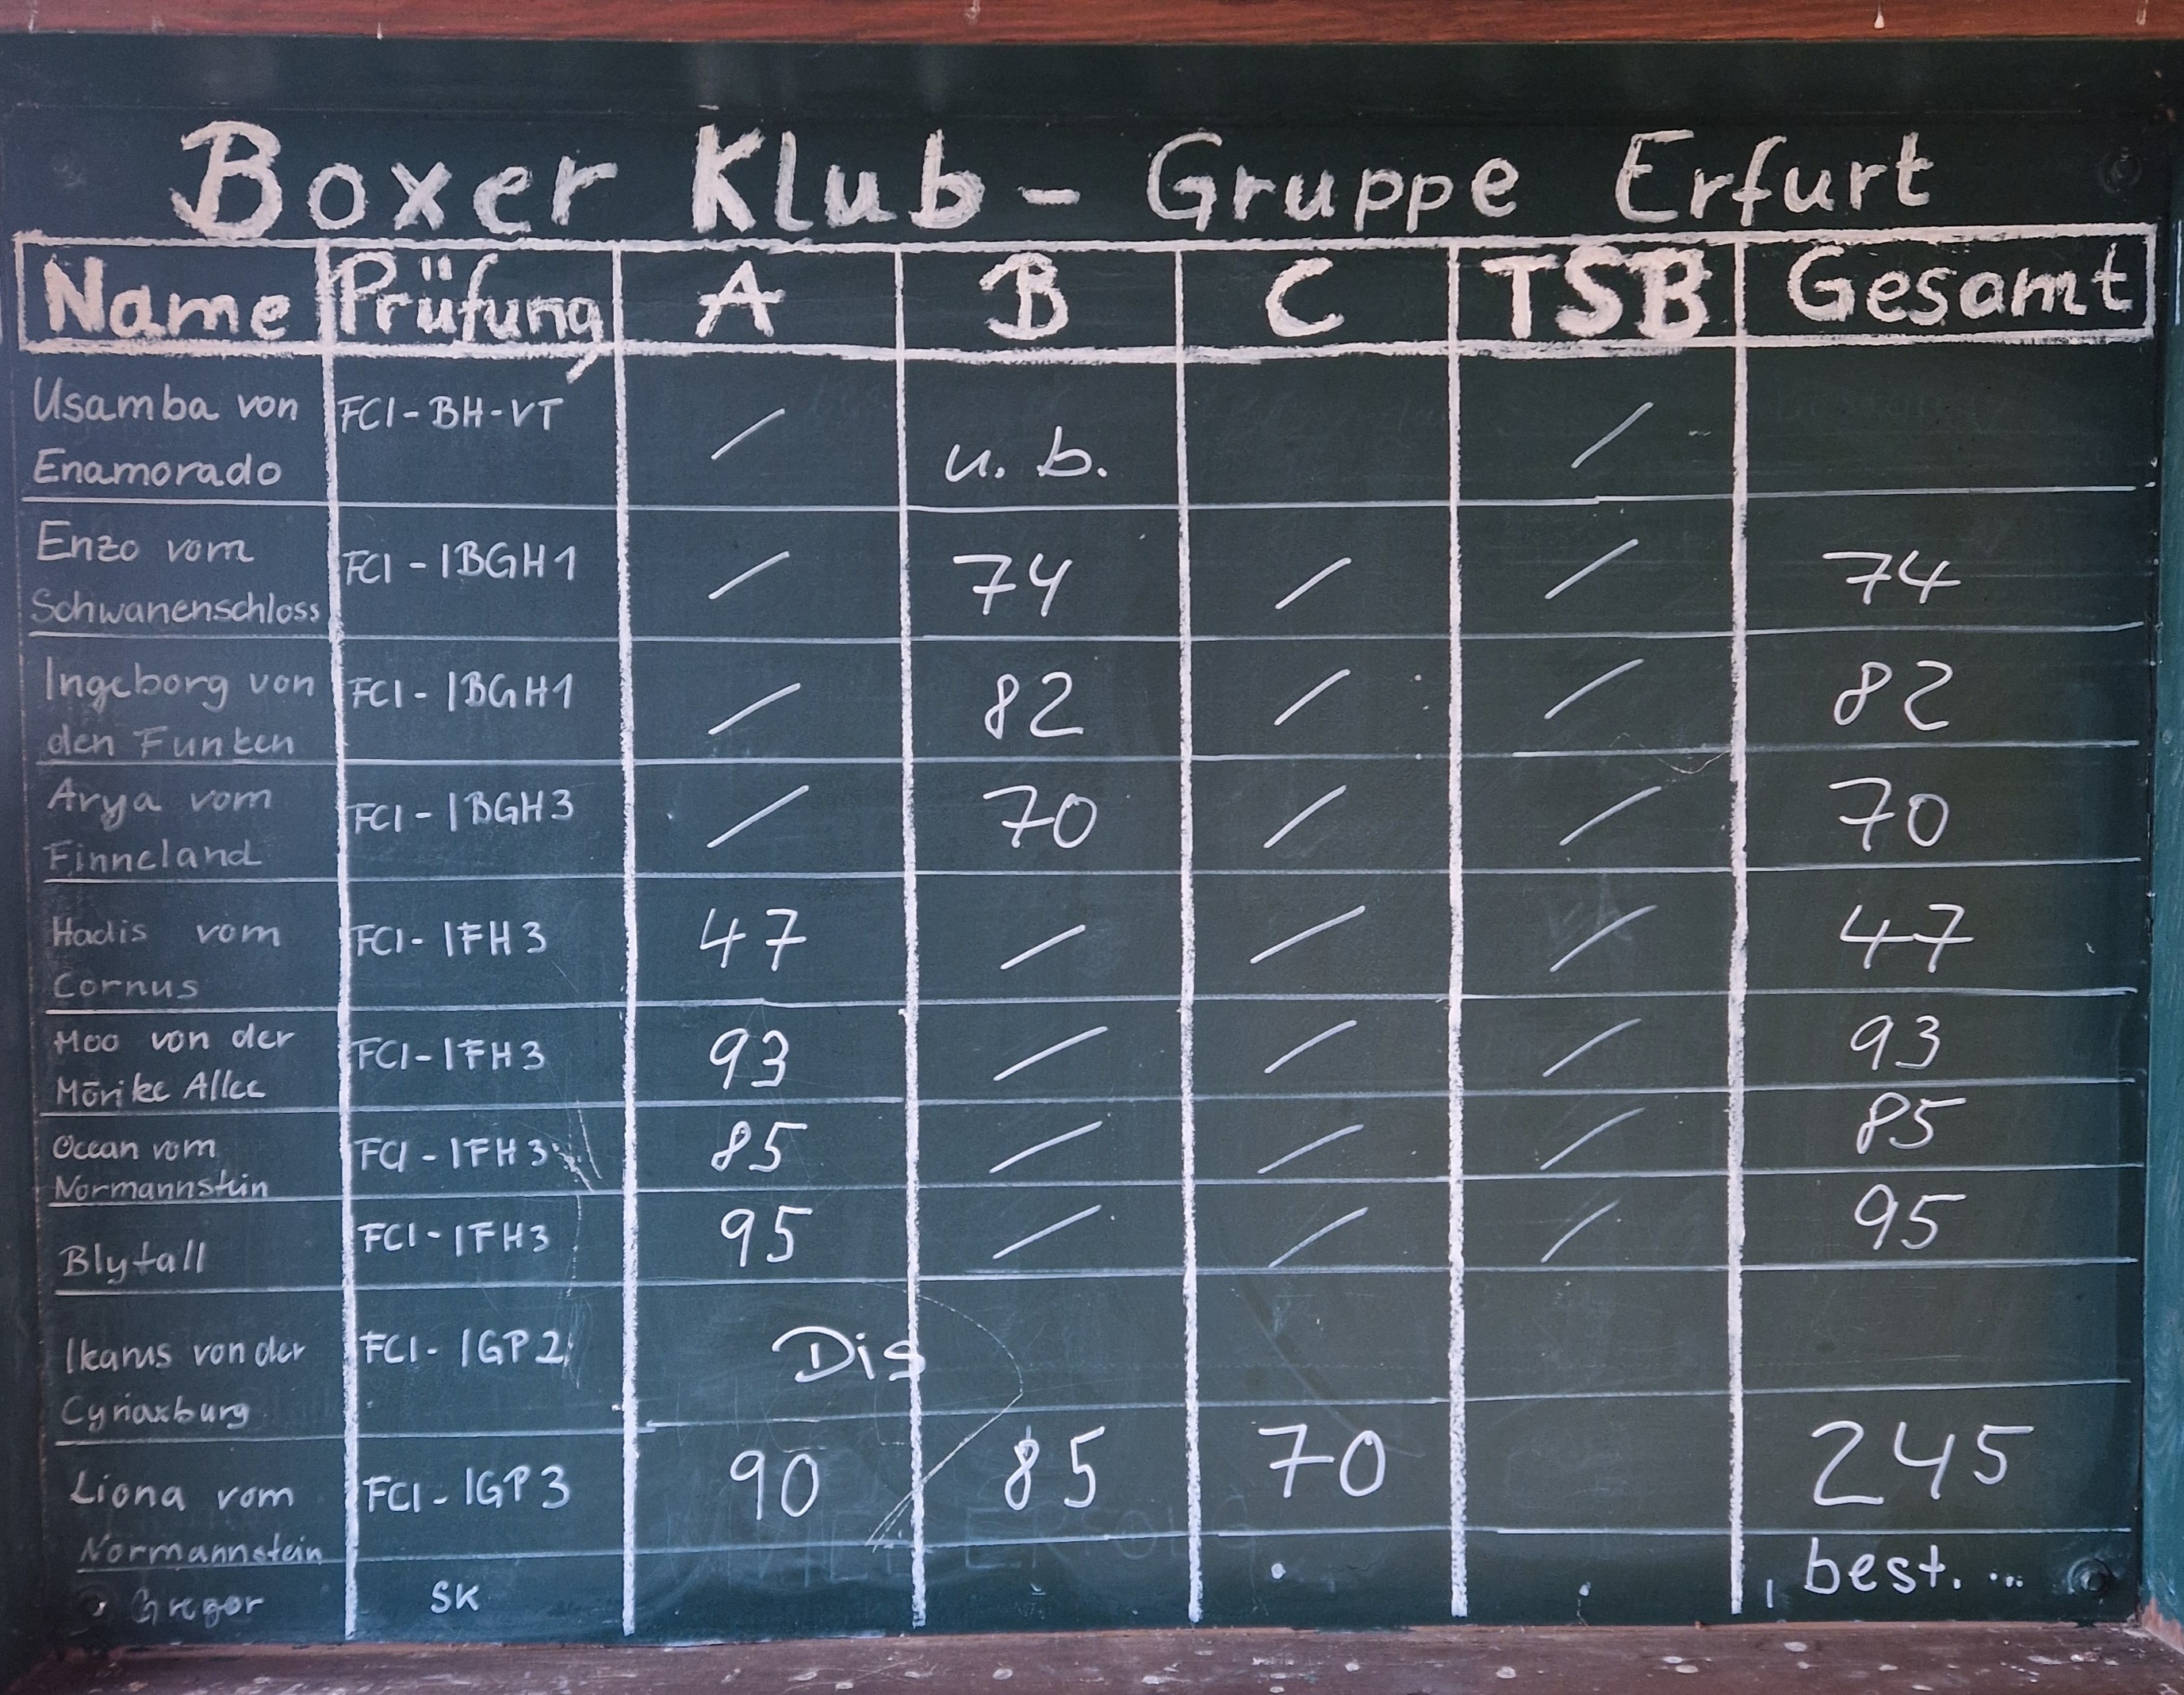 Boxer Klub - Gruppe Erfurt
Name Prüfung A B C TSB Gesamt
Usamba von FCI-BH-VT / /
Enamorado u. b.
Enzo vom FCI-IBGH1 / 74 / / 74
Schwanenschloss
Ingeborg von FCI-IBGH1 / 82 / / 82
den Funken
Arya vom FCI-IBGH3 / 70 / / 70
Finneland
Hadis vom FCI-IFH3 47 / / / 47
Cornus
Moo von der FCI-IFH3 93 / / / 93
Mörike Allee
Ocean vom FCI-IFH3 85 / / / 85
Normannstein
Blytall FCI-IFH3 95 / / / 95
Ikarus von der FCI-IGP2 Dis
Cyriaxburg
Liona vom FCI-IGP3 90 85 70 245
Normannstein
Gregor SK best. ...